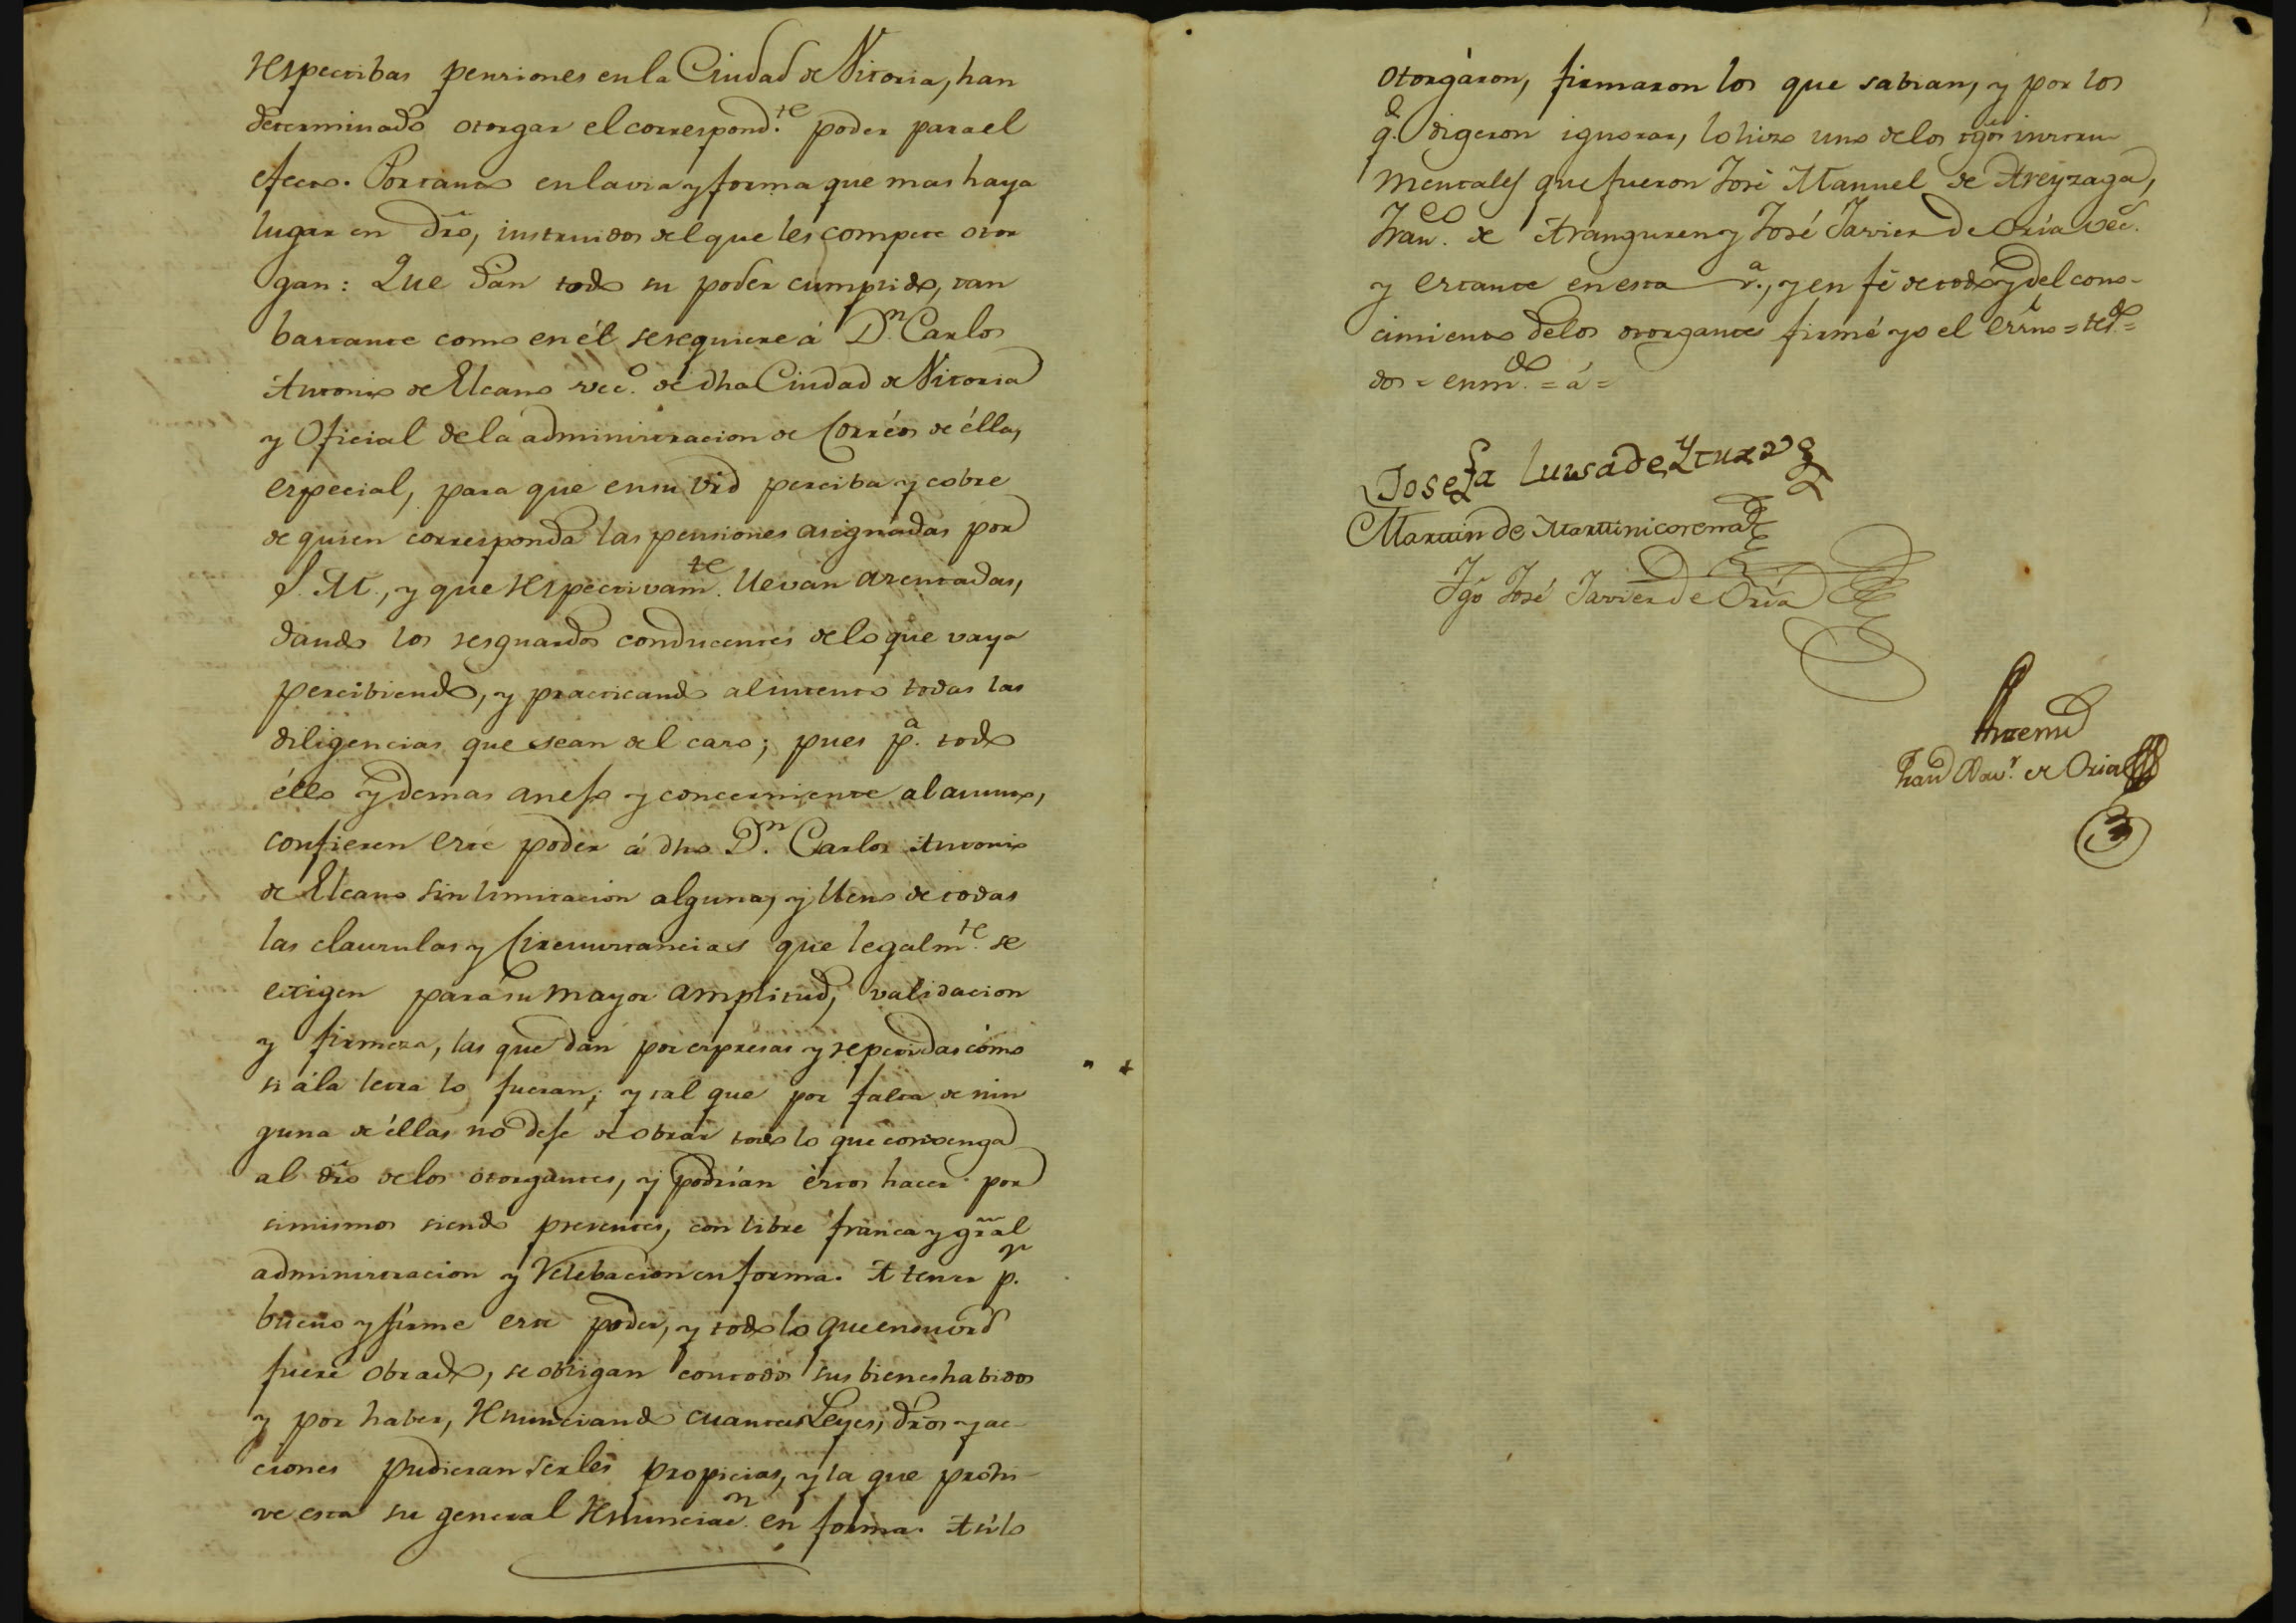 respectibas pensiones en la Ciudad de Vitoria, han
determinado otorgar el correspond.te poder para el
efecto. Portanto en la via y forma que mas haya
lugar en dro, instruidos del que les compete otor
gan: Que dan todo su poder cumplido, tan
bastante como en él se requiere á D.n Carlos
Antonio de Elcano vec.o de dha Ciudad de Vitoria
y Oficial de la administracion de Corréos de élla,
especial, para que en su vrd perciba y cobre
de quien corresponda las pensiones asignadas por
S. M., y que respectivam.te llevan asentadas,
dando los resguardos conducentes de lo que vaya
percibiendo, y practicando al intento todas las
diligencias que sean del caso; pues p.a todo
éllo y demas anejo y concerniente al asunto,
confieren este poder á dho D.n Carlos Antonio
de Elcano sin limitacion alguna, y lleno de todas
las clausulas y circunstancias que legalm.te se
exigen para su mayor amplitud, validacion
y firmeza, las que dan por expresas y repetidas como
si á la letra lo fueran; y tal que por falta de nin
guna de éllas no deje de obrar todo lo que convenga
al dro de los otorgantes, y podrían éstos hacer por
simismos siendo presentes, con libre franca y gral
administracion y relebacion en forma. A tener p.r
bueno y firme este poder, y todo lo que en su vrd
fuere obrado, se obligan con todos sus bienes habidos
y por haber, renunciando cuantas Leyes, dros y ac-
ciones pudieran serles propicias, y la que prohi-
ve esta su general renunciac.n en forma. Asi lo
otorgáron, firmaron los que sabian, y por los
q.e digeron ignorar, lo hizo uno de los tgos instru
mentales que fueron José Manuel de Areyzaga,
Fran.co de Aranguren y José Javier de Oria vec.s
y estante en esta v.a, y en fé de todo y del cono-
cimiento de los otorgantes firmé yo el essno = tes.do =
dos = enm.do = á =
Josefa Luisa de Yturzaeta
Martin de Martinicorena
Tgo José Javier de Oria
Antemi
Fran.co Xav.r de Oria